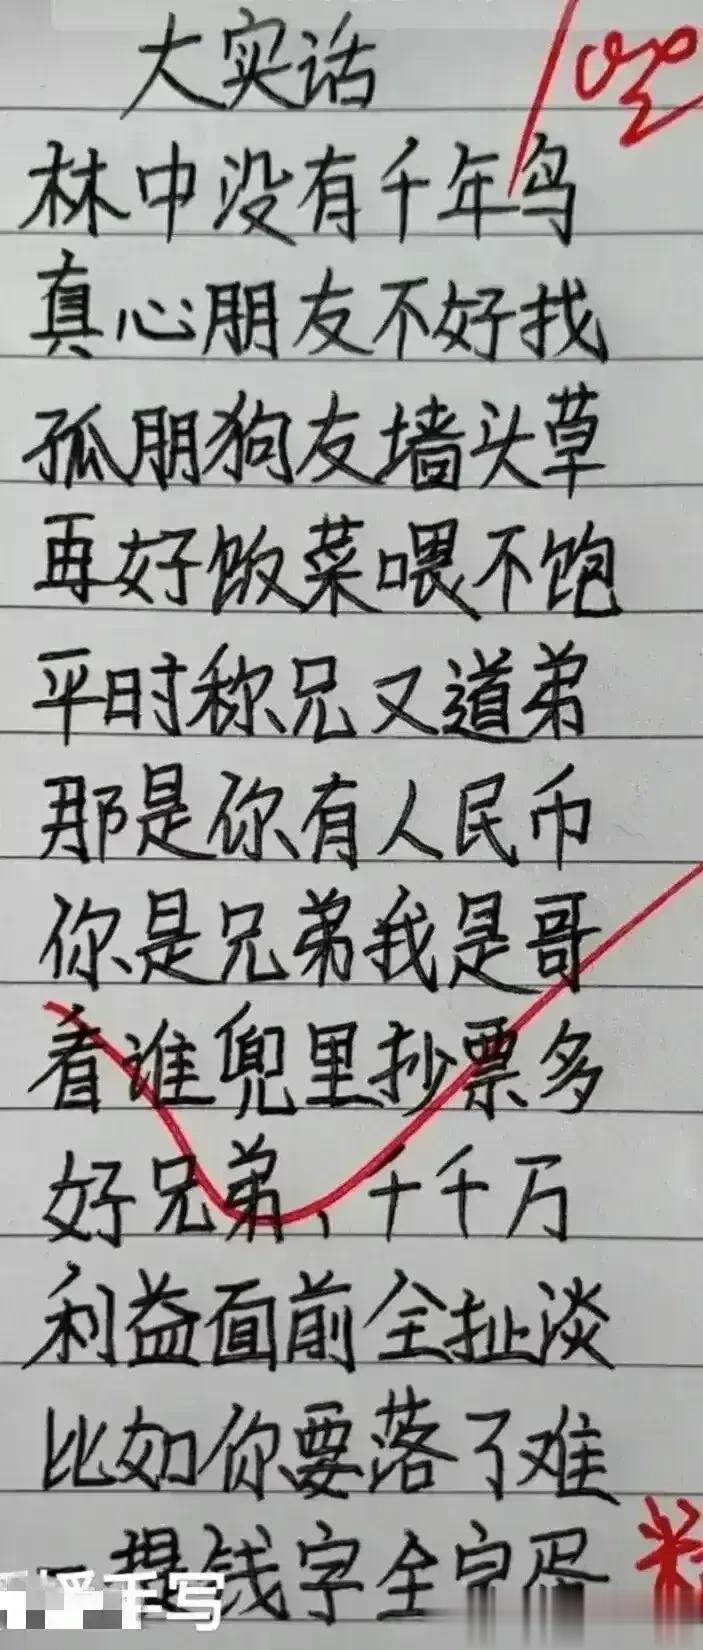 大实话
林中没有千年鸟
真心朋友不好找
孤朋狗友墙头草
再好饭菜喂不饱
平时称兄又道弟
那是你有人民币
你是兄弟我是哥
看谁兜里抄票多
好兄弟、千千万
利益面前全扯淡
比如你要落了难
提钱字全完蛋
手写